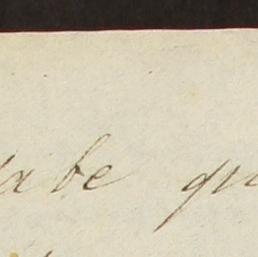 abe qu